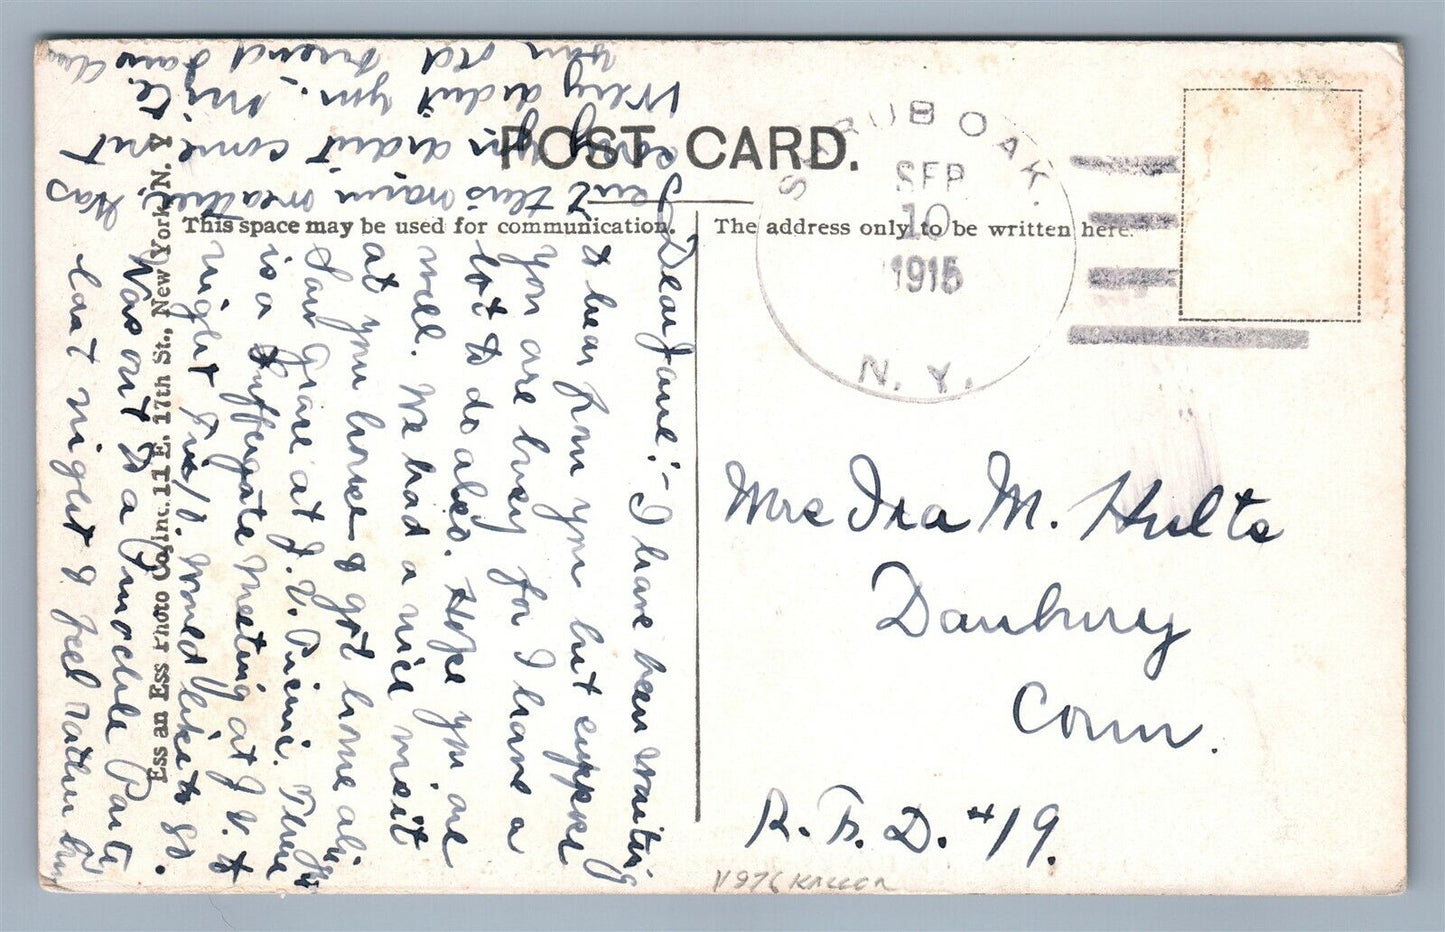 POST CARD.
This space may be used for communication.
The address only to be written here.
SHRUB OAK.
SEP
10
1915
N. Y.
Ess an Ess Photo Co., Inc. 11 E. 17th St., New York N. Y.
Dear Jane:- I have been waiting
to hear from you but suppose
you are busy for I have a
lot to do also. Hope you are
well. We had a nice visit
at your house & got home alright
Saw Grace at J. V. There
is a Suffragate Meeting at J. V. to
night Fri/. would like to go.
Was out to a Pinochle Party
last night & feel rather
Has
this warm weather.
you didnt come out
Very didnt you.
Your old friend
Mrs Ira M. Hults
Danbury
Conn.
R. F. D. #19.